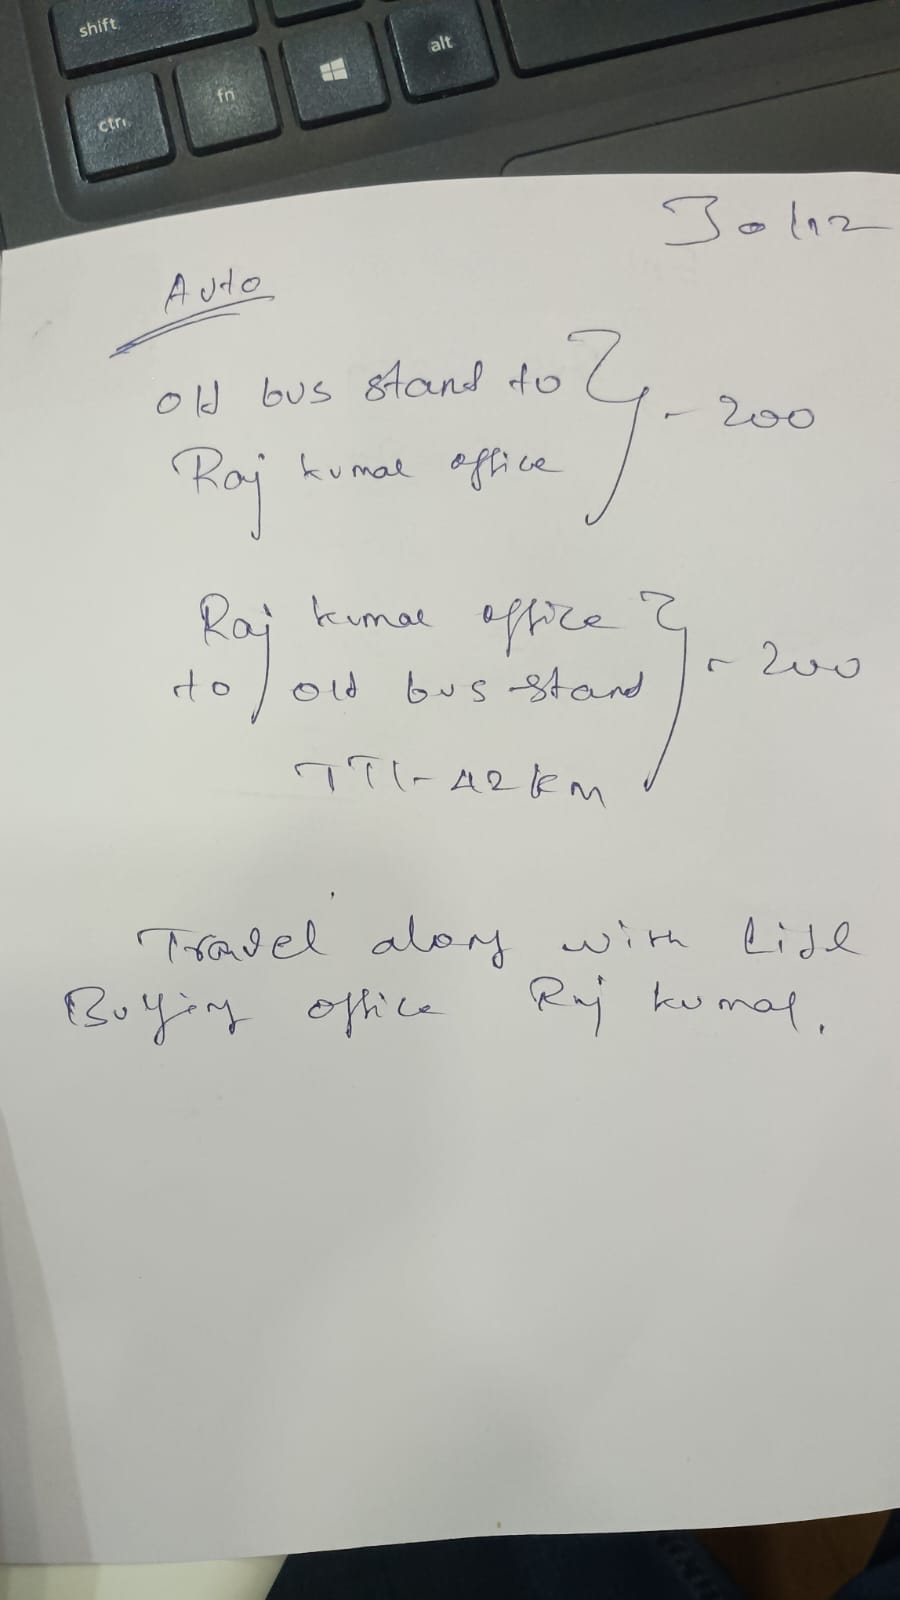 shift
alt
fn
ctrl
30/12
Auto
old bus stand to
Raj kumar office
- 200
Raj kumar office
to old bus stand
- 200
TTl - 42 km
Travel along with Lidl
Buying office Raj kumar.